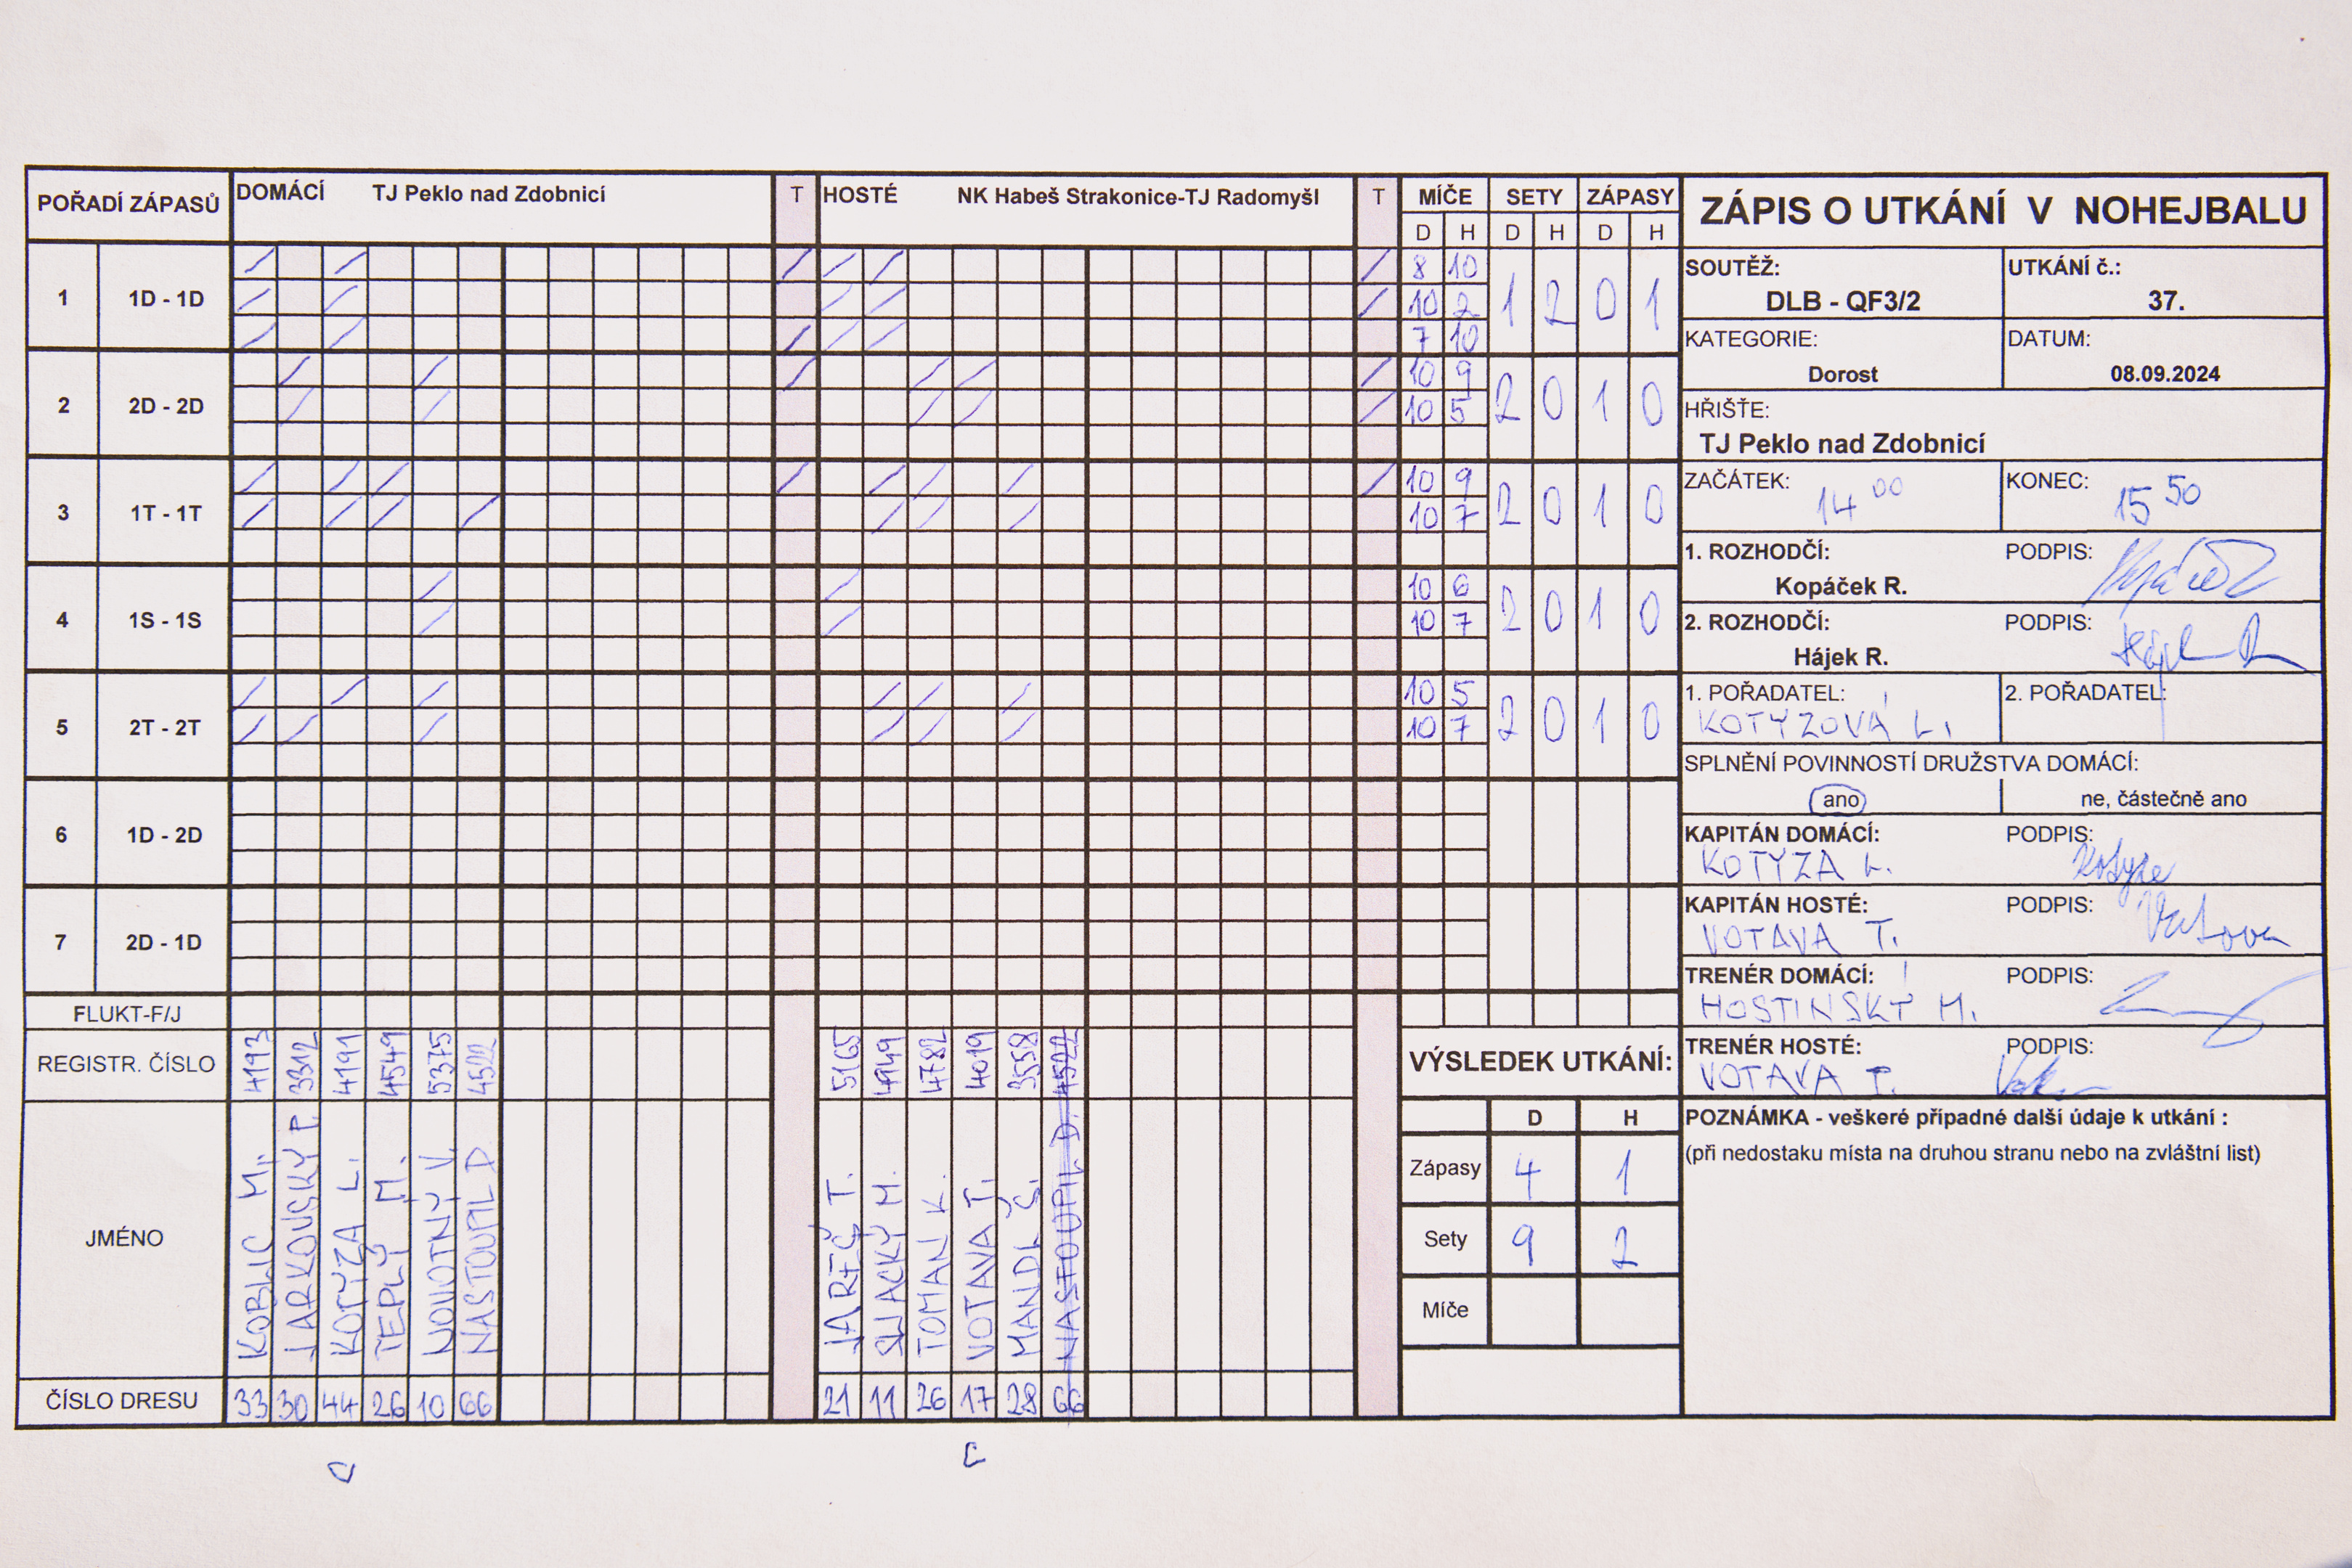 POŘADÍ ZÁPASŮ DOMÁCÍ TJ Peklo nad Zdobnicí T HOSTÉ NK Habeš Strakonice-TJ Radomyšl T MÍČE SETY ZÁPASY
D H D H D H
1 1D - 1D 8 10 1 2 0 1
10 2
7 10
2 2D - 2D 10 9 2 0 1 0
10 5
3 1T - 1T 10 9 2 0 1 0
10 7
4 1S - 1S 10 6 2 0 1 0
10 7
5 2T - 2T 10 5 2 0 1 0
10 7
6 1D - 2D
7 2D - 1D
FLUKT-F/J
REGISTR. ČÍSLO 4193 3312 4191 4549 5375 4522 5165 4949 4782 4019 3558 4522
JMÉNO KOBLIC M. JARKOVSKÝ P. KOTYZA L. TEPLÝ M. NOVOTNÝ V. NASTOUPIL D TOMAN K. VOTAVA T. MANDL Š. NASTOUPIL D.
ČÍSLO DRESU 33 30 44 26 10 66 21 11 26 17 28 66
C C
ZÁPIS O UTKÁNÍ V NOHEJBALU
SOUTĚŽ: UTKÁNÍ č.:
DLB - QF3/2 37.
KATEGORIE: DATUM:
Dorost 08.09.2024
HŘIŠTE:
TJ Peklo nad Zdobnicí
ZAČÁTEK: 14 00 KONEC: 15 50
1. ROZHODČÍ: PODPIS:
Kopáček R.
2. ROZHODČÍ: PODPIS:
Hájek R.
1. POŘADATEL: 2. POŘADATEL:
KOTYZOVÁ L.
SPLNĚNÍ POVINNOSTÍ DRUŽSTVA DOMÁCÍ:
ano ne, částečně ano
KAPITÁN DOMÁCÍ: PODPIS:
KOTYZA L. Kotyza
KAPITÁN HOSTÉ: PODPIS:
VOTAVA T. Votava
TRENÉR DOMÁCÍ: PODPIS:
HOSTINSKÝ M.
TRENÉR HOSTÉ: PODPIS:
VOTAVA T.
VÝSLEDEK UTKÁNÍ:
D H
Zápasy 4 1
Sety 9 2
Míče
POZNÁMKA - veškeré případné další údaje k utkání :
(při nedostaku místa na druhou stranu nebo na zvláštní list)